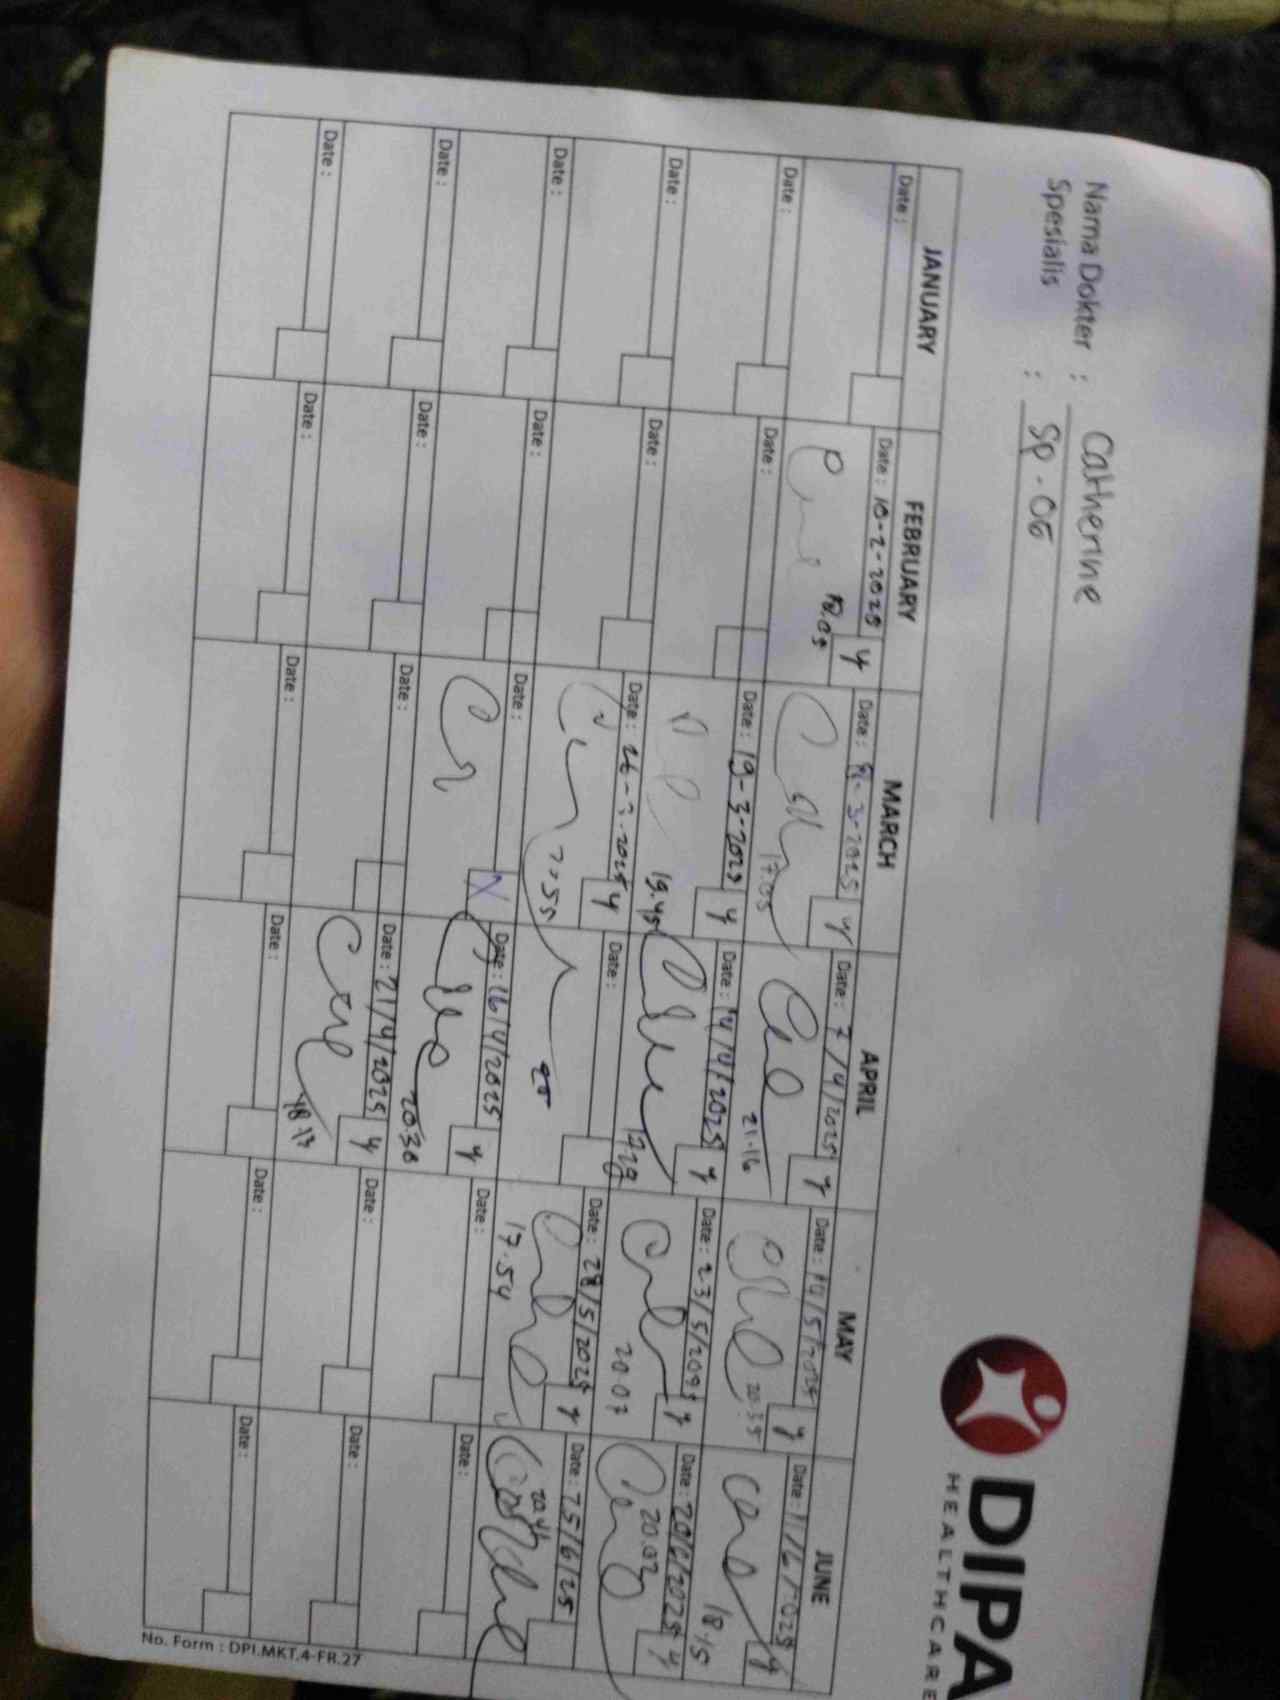 DIPA
HEALTHCARE
Nama Dokter : Catherine
Spesialis : Sp. OG
JANUARY FEBRUARY MARCH APRIL MAY JUNE
Date : Date : 10-2-2025 y Date : 3-2025 y Date : 7/4/2025 y Date : 14/5/2025 y Date : 11/6/2025 y
17.05 21.16 20.35 18.15
Date : Date : Date : 19-3-2025 y Date : 14/4/2025 y Date : 23/5/2025 y Date : 20/6/2025 y
19.45 17.29 20.07 20.03
Date : Date : Date : 26-3-2025 y Date : Date : 28/5/2025 y Date : 25/6/25
20 17.54
Date : Date : Date : Date : 16/4/2025 y Date : Date :
20.30
Date : Date : Date : Date : 21/4/2025 y Date : Date :
18.13
Date : Date : Date : Date : Date : Date :
No. Form : DPI.MKT.4-FR.27